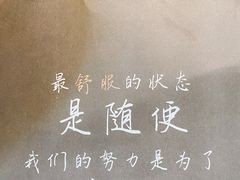 最舒服的状态
是随便
我们的努力是为了